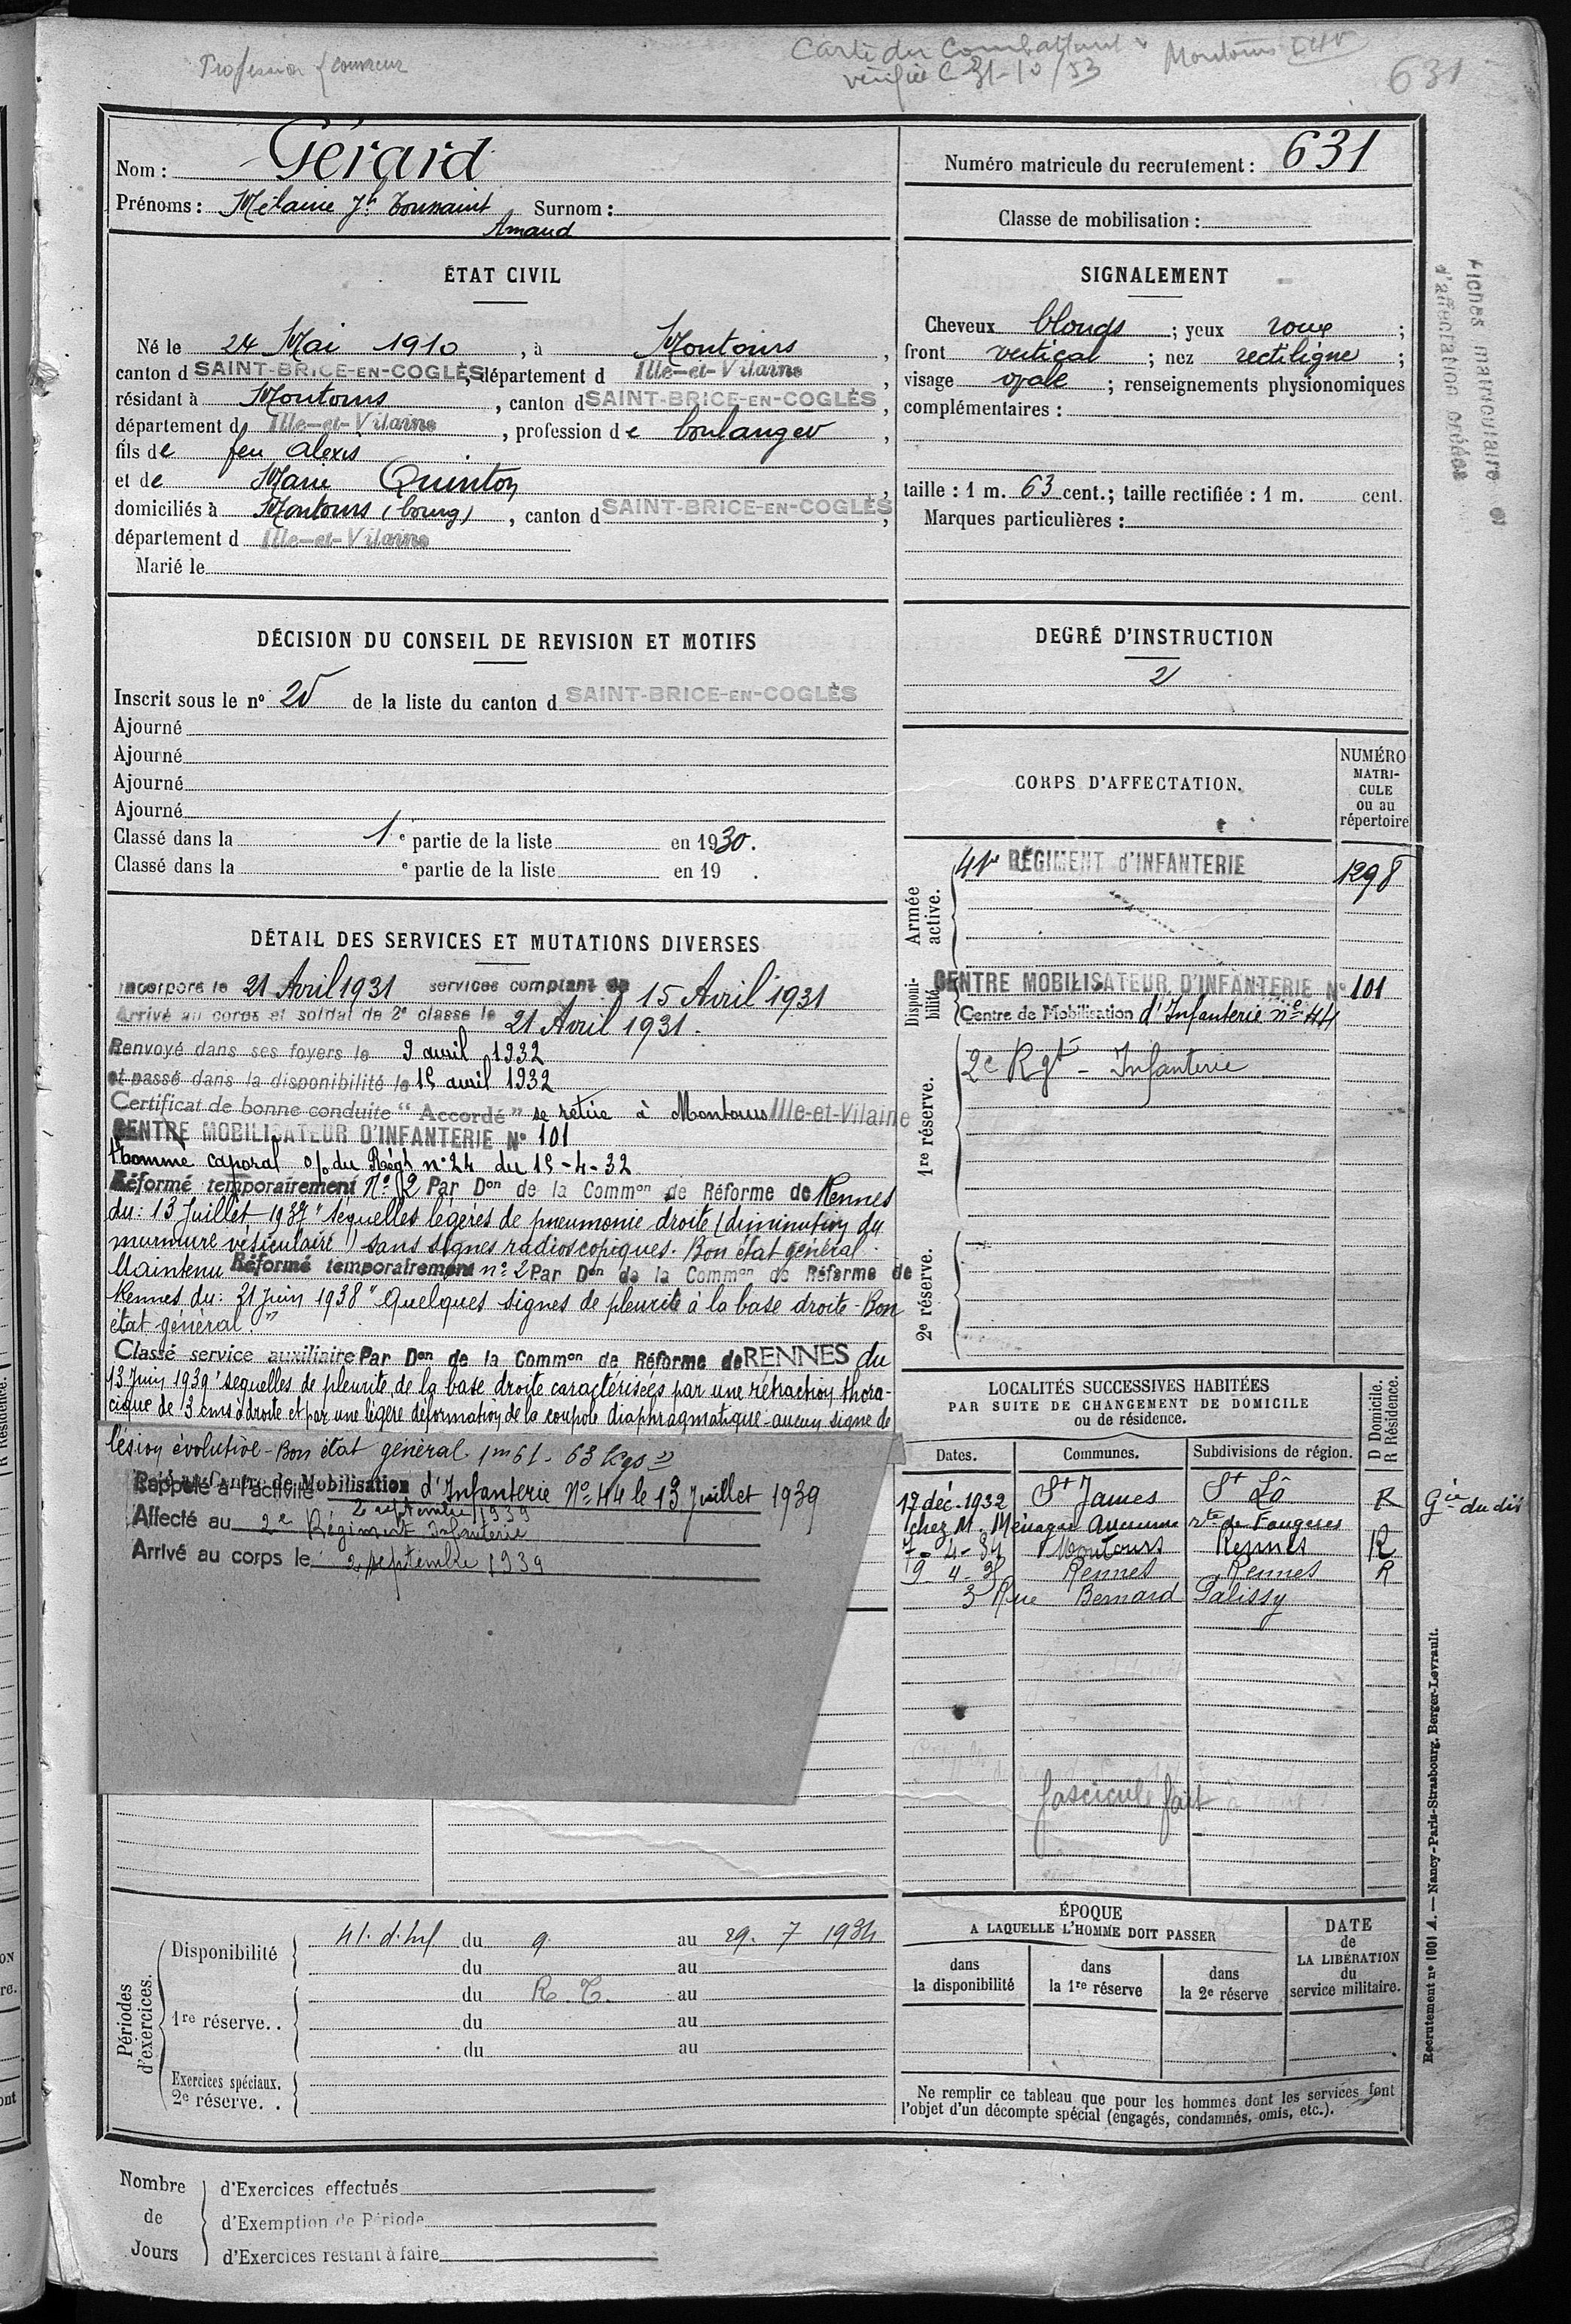 Profession
Carte du Combattant
vérifiée C 31-10/53
Montours
631
Nom : Gérard
Prénoms : Mélaine Jh Toussaint Surnom :
Amand
Numéro matricule du recrutement : 631
Classe de mobilisation :
ÉTAT CIVIL
Né le 24 Mai 1910, à Montours,
canton d SAINT-BRICE-EN-COGLÈS, département d Ille-et-Vilaine,
résidant à Montours, canton d SAINT-BRICE-EN-COGLÈS,
département d Ille-et-Vilaine, profession de boulanger,
fils de feu Alexis
et de Marie Quinton,
domiciliés à Montours (bourg), canton d SAINT-BRICE-EN-COGLÈS,
département d Ille-et-Vilaine
Marié le
SIGNALEMENT
Cheveux blonds ; yeux roux ;
front vertical ; nez rectiligne ;
visage ovale ; renseignements physionomiques
complémentaires :
taille : 1 m. 63 cent.; taille rectifiée : 1 m. cent.
Marques particulières :
Fiches matriculaire et
d'affectation créées
DÉCISION DU CONSEIL DE REVISION ET MOTIFS
Inscrit sous le nº 25 de la liste du canton d SAINT-BRICE-EN-COGLÈS
Ajourné
Ajourné
Ajourné
Ajourné
Classé dans la 1e partie de la liste en 1930.
Classé dans la e partie de la liste en 19 .
DEGRÉ D'INSTRUCTION
2
CORPS D'AFFECTATION.
NUMÉRO
MATRI-
CULE
ou au
répertoire
Armée
active.
41e RÉGIMENT d'INFANTERIE 1298
Disponi-
bilité
CENTRE MOBILISATEUR D'INFANTERIE Nº 101
Centre de Mobilisation d'Infanterie nº 44
1re réserve.
2e Rgt - Infanterie
2e réserve.
DÉTAIL DES SERVICES ET MUTATIONS DIVERSES
Incorporé le 21 Avril 1931 services comptant du 15 Avril 1931
Arrivé au corps et soldat de 2e classe le 21 Avril 1931.
Renvoyé dans ses foyers le 9 avril 1932
et passé dans la disponibilité le 15 avril 1932
Certificat de bonne conduite "Accordé" se retire à Montours Ille-et-Vilaine
CENTRE MOBILISATEUR D'INFANTERIE Nº 101
Nommé caporal o/ du Régt nº 24 du 15-4-32
Réformé temporairement Nº 2 Par Don de la Common de Réforme de Rennes
du : 13 Juillet 1937 "séquelles légères de pneumonie droite (diminution du
murmure vésiculaire") sans signes radioscopiques. Bon état général.
Maintenu Réformé temporairement nº 2 Par Don de la Common de Réforme de
Rennes du : 21 Juin 1938 "Quelques signes de pleurite à la base droite - Bon
état général."
Classé service auxiliaire Par Don de la Common de Réforme de RENNES du
13 Juin 1939 "séquelles de pleurite de la base droite caractérisées par une rétraction thora-
cique de 3 cms à droite et par une légère déformation de la coupole diaphragmatique - aucun signe de
lésion évolutive - Bon état général 1m61 - 63 Kgs"
Centre de Mobilisation d'Infanterie Nº 44 le 13 Juillet 1939
Rappelé à l'activité 2 septembre 1939
Affecté au 2e Régiment Infanterie
Arrivé au corps le 2 septembre 1939
LOCALITÉS SUCCESSIVES HABITÉES
PAR SUITE DE CHANGEMENT DE DOMICILE
ou de résidence.
D Domicile.
R Résidence.
Dates. Communes. Subdivisions de région.
17 déc. 1932 St James St Lô R
chez M. Ménagé rte de Fougères
7-4-34 Montours Rennes R
9 4-35 Rennes Rennes R
3 Rue Bernard Palissy
fascicule fait
Périodes
d'exercices.
Disponibilité 41. d'Inf du 9 au 29. 7 1934
du au
du R.T. au
1re réserve. . du au
du au
Exercices spéciaux.
2e réserve. .
ÉPOQUE
A LAQUELLE L'HOMME DOIT PASSER
dans
la disponibilité
dans
la 1re réserve
dans
la 2e réserve
DATE
de
LA LIBÉRATION
du
service militaire.
Ne remplir ce tableau que pour les hommes dont les services font
l'objet d'un décompte spécial (engagés, condamnés, omis, etc.).
Recrutement nº 1001 A. — Nancy-Paris-Strasbourg, Berger-Levrault.
Nombre
de
Jours
d'Exercices effectués
d'Exemption de Période
d'Exercices restant à faire